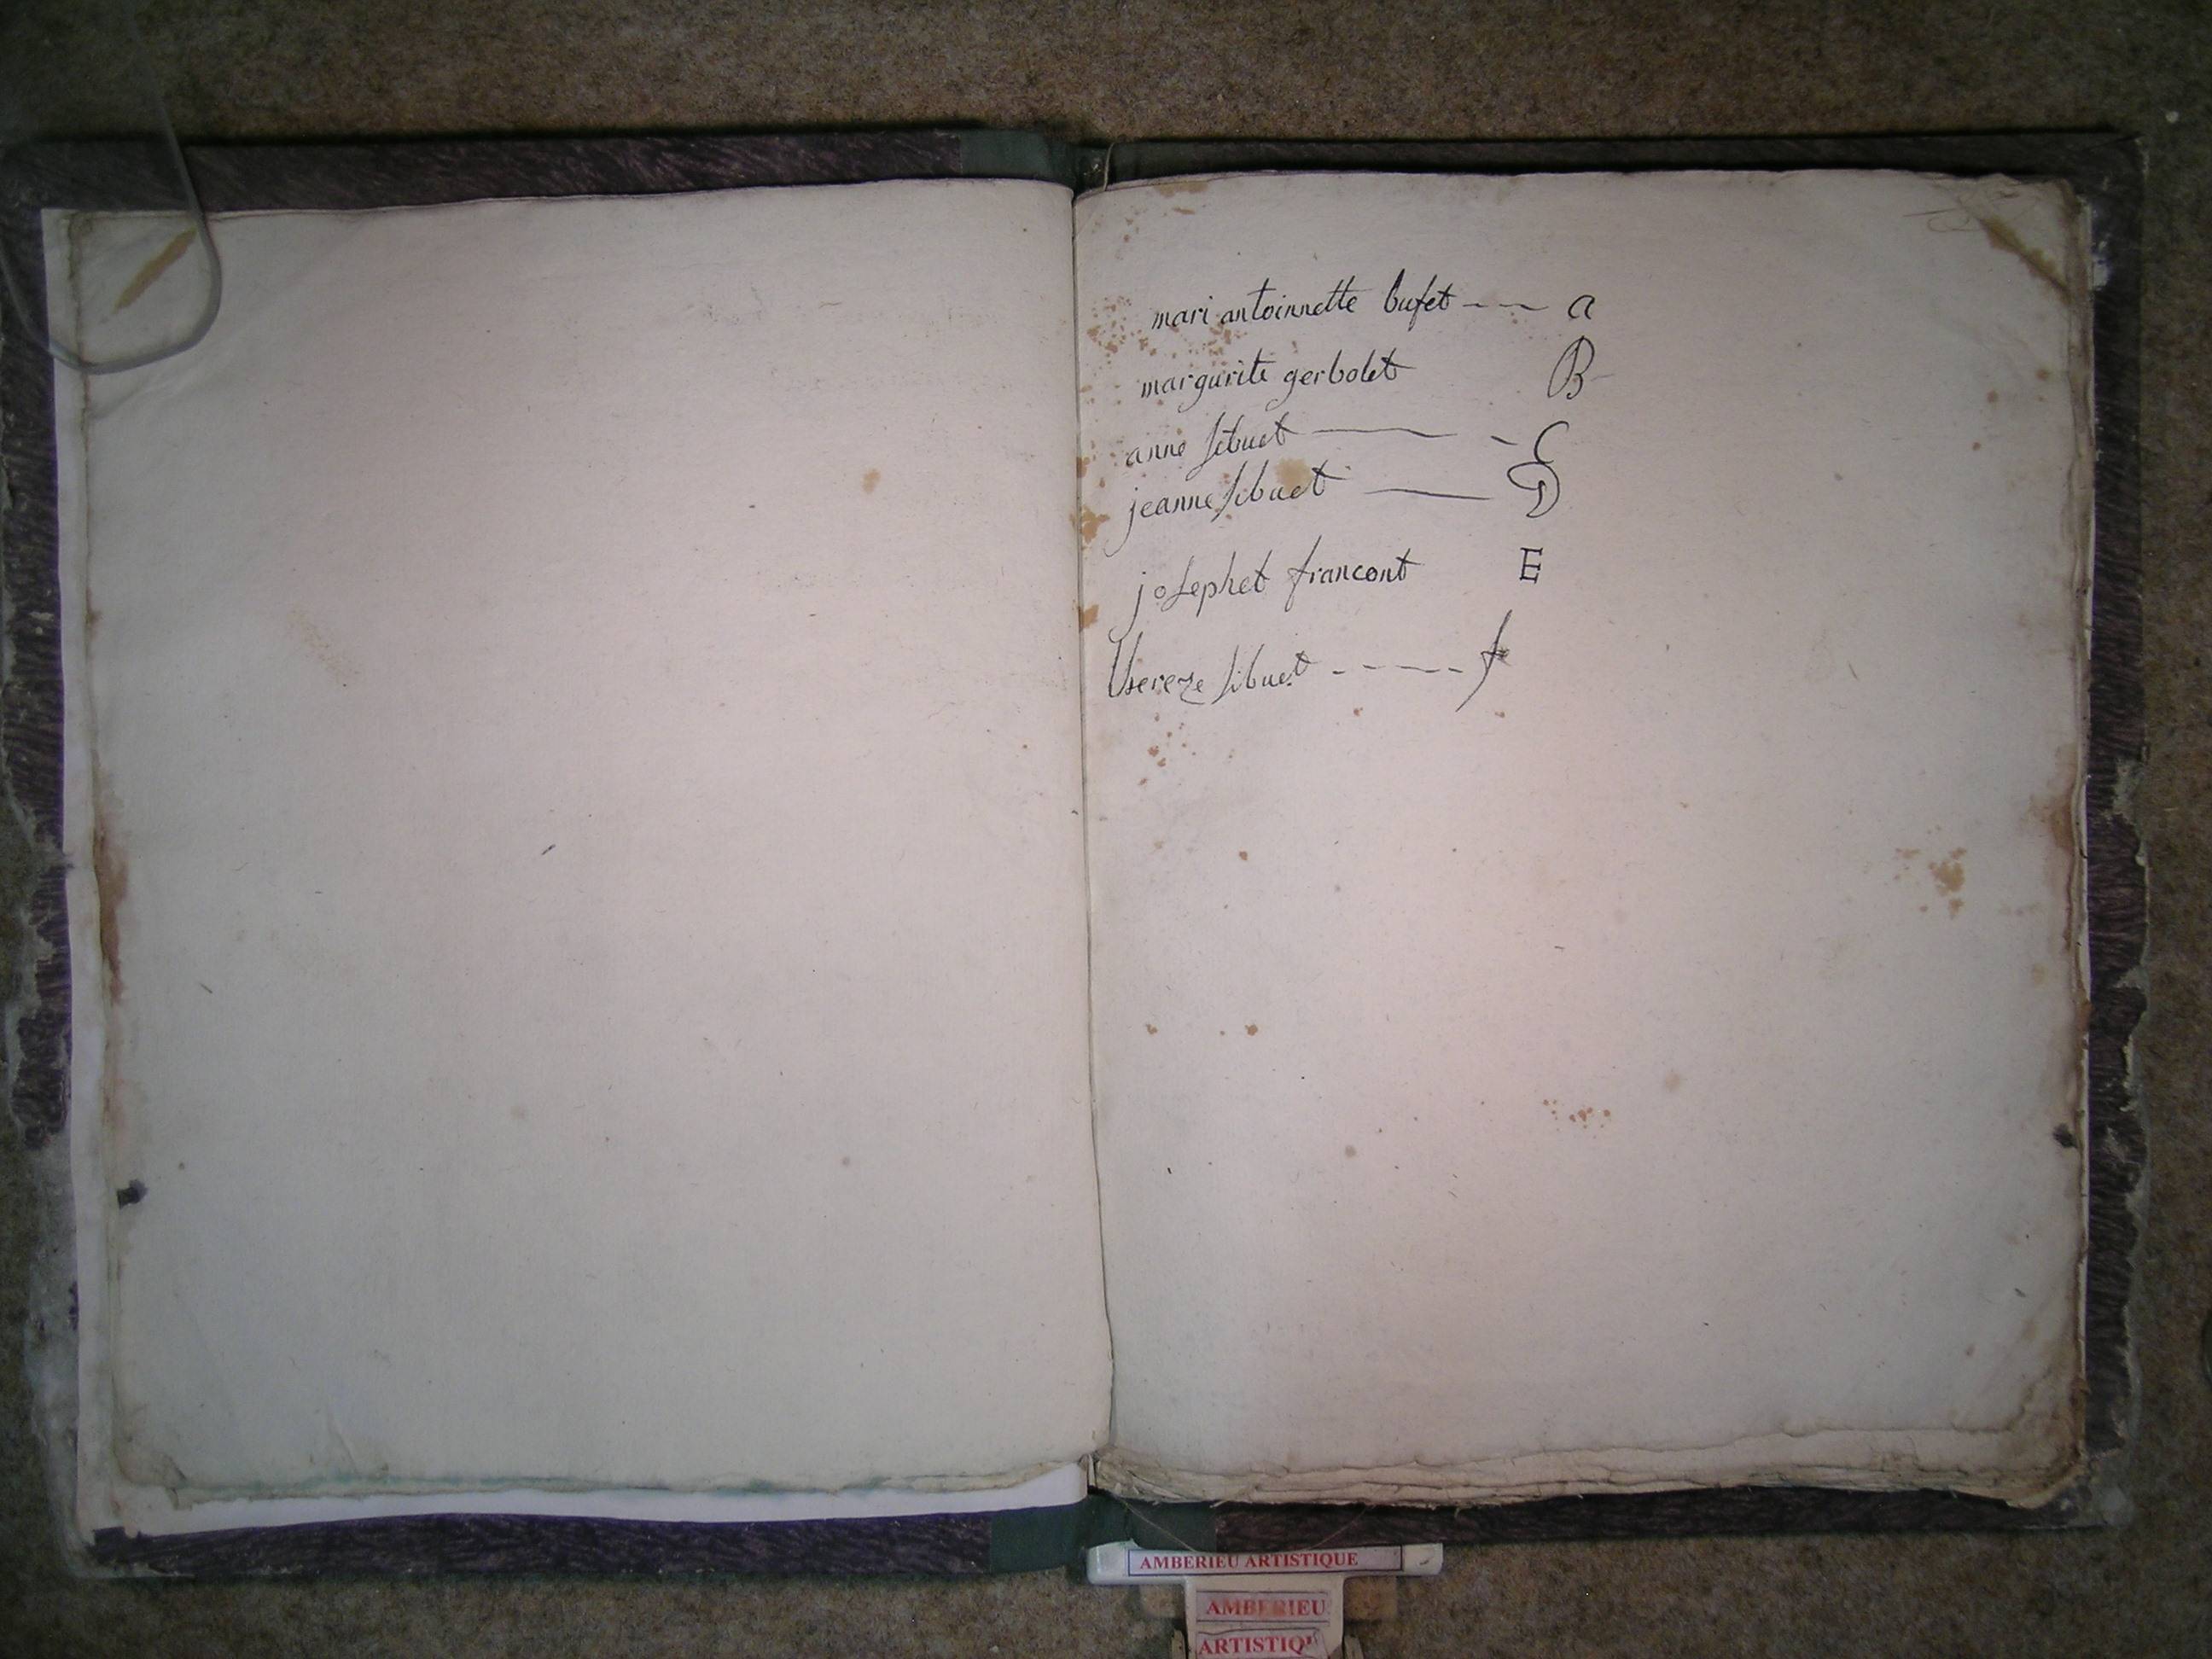 mari antoinnette bufet --- a
margurite gerbolet B
anne sibuet — - C
jeanne sibuet — D
josephet francont E
thereze sibuet ----- f
AMBERIEU ARTISTIQUE
AMBERIEU
ARTISTIQ